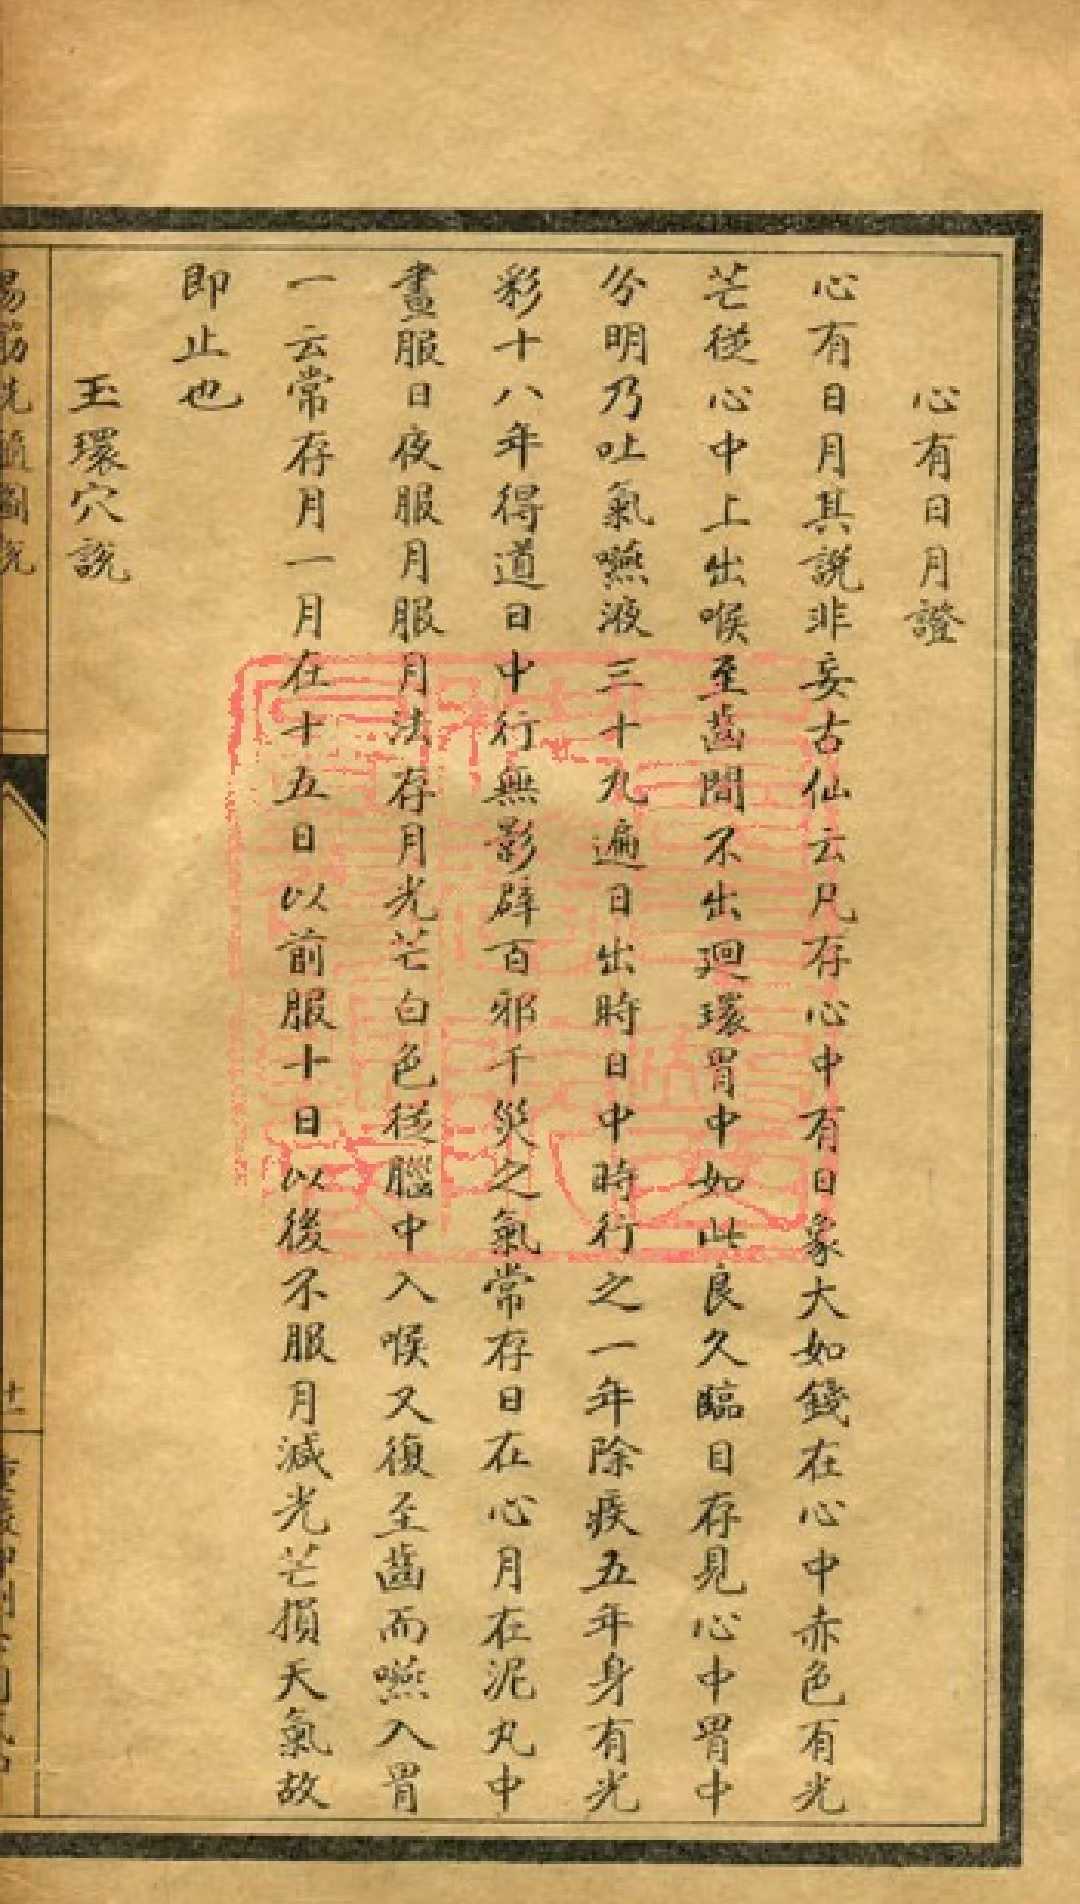 心有日月證
心有日月其說非妄古仙云凡存心中有日象大如錢在心中赤色有光
芒從心中上出喉至齒間不出迴環胃中如此良久臨目存見心中胃中
分明乃吐氣嚥液三十九遍日出時日中時行之一年除疾五年身有光
彩十八年得道日中行無影辟百邪千災之氣常存日在心月在泥丸中
晝服日夜服月服月法存月光芒白色從腦中入喉又復至齒而嚥入胃
一云常存月一月在十五日以前服十日以後不服月減光芒損天氣故
即止也
玉環穴說
易筋洗髓圖說
廿一